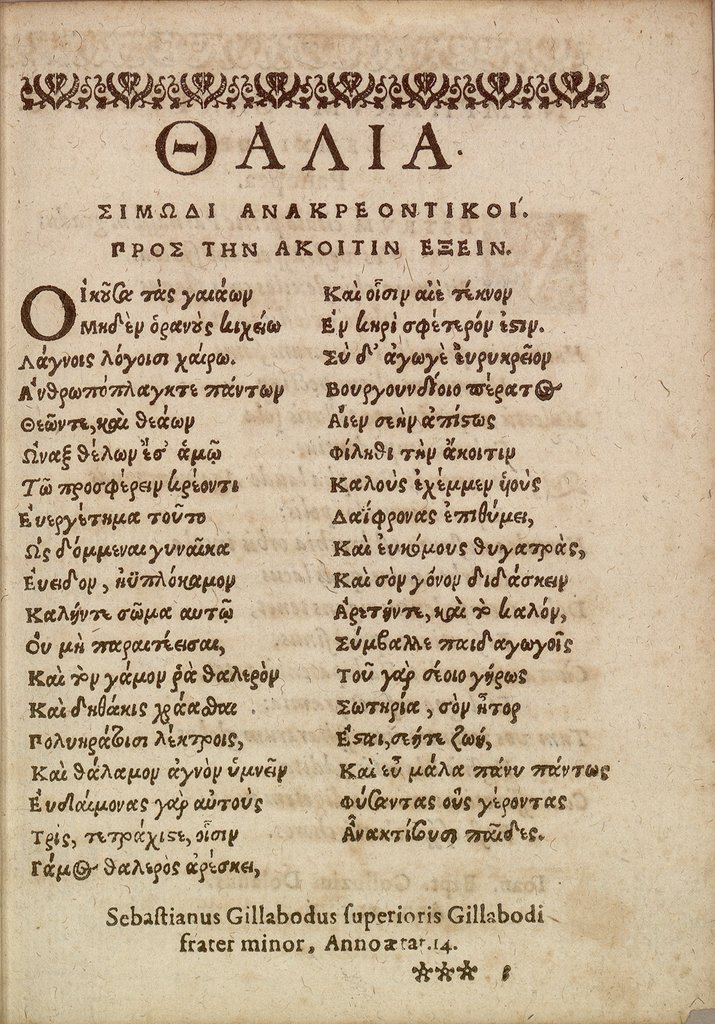 ΘΑΛΙΑ.
ΣΙΜΩΔΙ ΑΝΑΚΡΕΟΝΤΙΚΟΙ.
ΠΡΟΣ ΤΗΝ ΑΚΟΙΤΙΝ ΕΞΕΙΝ.
Οἰκοῦσα τὰς γαιάων
Μηδὲν ὀρανοὺς κιχείω
Λάγνοις λόγοισι χαίρω.
Ἀνθρωπόπλαγκτε πάντων
Θεῶντε, καὶ θεάων
Ὦναξ θέλων ἐς' ἁμῷ
Τῷ προσφέρειν κρέοντι
Εὐεργέτημα τοῦτο
Ὡς δόμμεναι γυναῖκα
Ἐυειδον, ἠϋπλόκαμον
Καλήντε σῶμα αυτῷ
Οὐ μὴ παραιτέεισαι,
Καὶ τὸν γάμον ῥὰ θαλερὸν
Καὶ δηθάκις χράασθαι
Πολυηράτοισι λέκτροις,
Καὶ θάλαμον ἁγνὸν ὑμνεῖν
Ἐυδαίμονας γαρ αὐτοὺς
Τρὶς, τετράχιστε, οἷσιν
Γάμος θαλερὸς ἀρέσκει,
Καὶ οἷσιν αἰὲ τέκνον
Ἐν κηρὶ σφέτερόν ἐστιν.
Σὺ δ' ἄγωγὲ ἐυρυκρεῖον
Βουργουνδίοιο πέρατος
Αἰεν σεὴν ἀπίστως
Φίληθι τὴν ἄκοιτιν
Καλοὺς ἐχέμμεν ὑοὺς
Δαΐφρονας ἐπιθύμει,
Καὶ ἐυκόμους θυγατρὰς,
Καὶ σὸν γόνον διδάσκειν
Ἀρετήντε, καὶ τὸ καλόν,
Σύμβαλλε παιδαγωγοῖς
Τοῦ γαρ σέοιο γήρως
Σωτηρία, σὸν ἦτορ
Ἔσται, σεήτε ζωή,
Καὶ εὖ μάλα πάνυ πάντως
Φύσαντας οὓς γέροντας
Ἀνακτίουσι παῖδες.
Sebastianus Gillabodus superioris Gillabodi
frater minor, Anno ætat. 14.
***